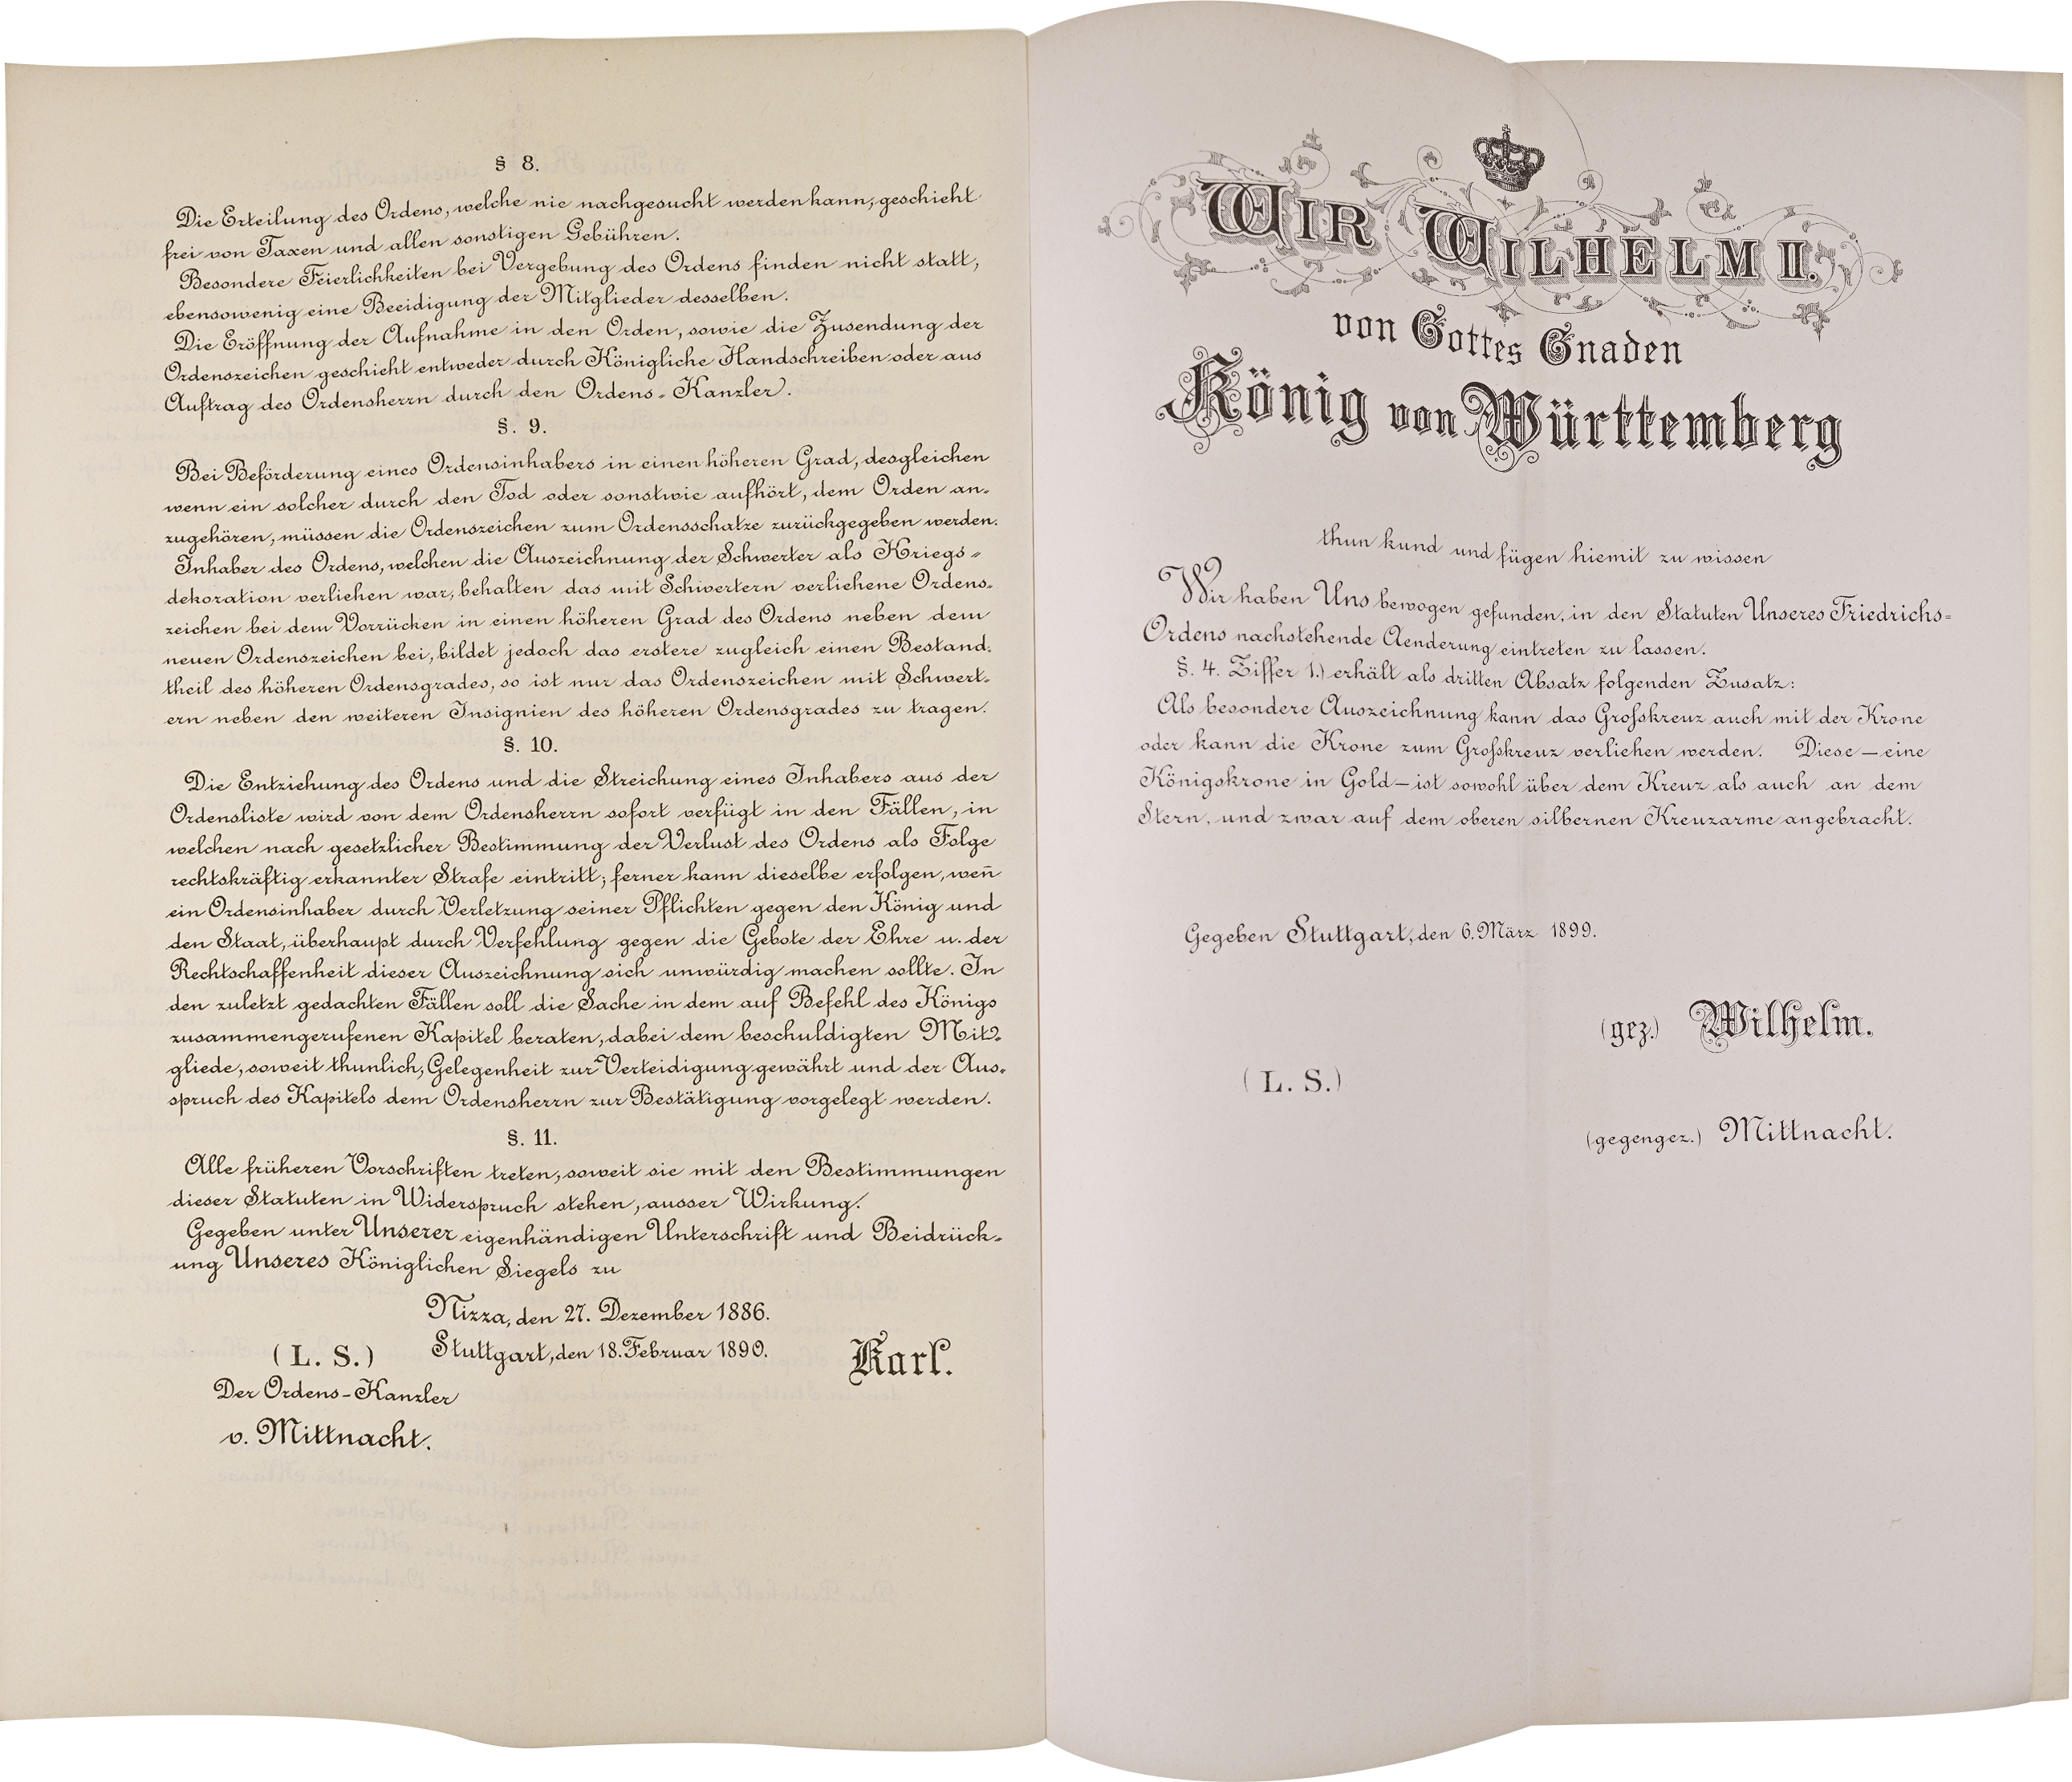 § 8.
Die Erteilung des Ordens, welche nie nachgesucht werden kann, geschieht
frei von Taxen und allen sonstigen Gebühren.
Besondere Feierlichkeiten bei Vergebung des Ordens finden nicht statt,
ebensowenig eine Beeidigung der Mitglieder desselben.
Die Eröffnung der Aufnahme in den Orden, sowie die Zusendung der
Ordenszeichen geschieht entweder durch Königliche Handschreiben oder aus
Auftrag des Ordensherrn durch den Ordens-Kanzler.
§. 9.
Bei Beförderung eines Ordensinhabers in einen höheren Grad, desgleichen
wenn ein solcher durch den Tod oder sonstwie aufhört, dem Orden an-
zugehören, müssen die Ordenszeichen zum Ordensschatze zurückgegeben werden.
Inhaber des Ordens, welchen die Auszeichnung der Schwerter als Kriegs-
dekoration verliehen war, behalten das mit Schwertern verliehene Ordens-
zeichen bei dem Vorrücken in einen höheren Grad des Ordens neben dem
neuen Ordenszeichen bei, bildet jedoch das erstere zugleich einen Bestand-
theil des höheren Ordensgrades, so ist nur das Ordenszeichen mit Schwert-
ern neben den weiteren Insignien des höheren Ordensgrades zu tragen.
§. 10.
Die Entziehung des Ordens und die Streichung eines Inhabers aus der
Ordensliste wird von dem Ordensherrn sofort verfügt in den Fällen, in
welchen nach gesetzlicher Bestimmung der Verlust des Ordens als Folge
rechtskräftig erkannter Strafe eintritt; ferner kann dieselbe erfolgen, wen̄
ein Ordensinhaber durch Verletzung seiner Pflichten gegen den König und
den Staat, überhaupt durch Verfehlung gegen die Gebote der Ehre u. der
Rechtschaffenheit dieser Auszeichnung sich unwürdig machen sollte. In
den zuletzt gedachten Fällen soll die Sache in dem auf Befehl des Königs
zusammengerufenen Kapitel beraten, dabei dem beschuldigten Mit-
gliede, soweit thunlich, Gelegenheit zur Verteidigung gewährt und der Aus-
spruch des Kapitels dem Ordensherrn zur Bestätigung vorgelegt werden.
§. 11.
Alle früheren Vorschriften treten, soweit sie mit den Bestimmungen
dieser Statuten in Widerspruch stehen, ausser Wirkung.
Gegeben unter Unserer eigenhändigen Unterschrift und Beidrück-
ung Unseres Königlichen Siegels zu
Nizza, den 27. Dezember 1886.
Stuttgart, den 18. Februar 1890.
(L. S.)
Karl.
Der Ordens-Kanzler
v. Mittnacht.
WIR WILHELM II.
von Gottes Gnaden
König von Württemberg
thun kund und fügen hiemit zu wissen
Wir haben Uns bewogen gefunden, in den Statuten Unseres Friedrichs-
Ordens nachstehende Aenderung eintreten zu lassen.
§. 4. Ziffer 1.) erhält als dritten Absatz folgenden Zusatz:
Als besondere Auszeichnung kann das Großkreuz auch mit der Krone
oder kann die Krone zum Großkreuz verliehen werden. Diese – eine
Königskrone in Gold – ist sowohl über dem Kreuz als auch an dem
Stern, und zwar auf dem oberen silbernen Kreuzarme angebracht.
Gegeben Stuttgart, den 6. März 1899.
(gez.) Wilhelm.
(L. S.)
(gegengez.) Mittnacht.